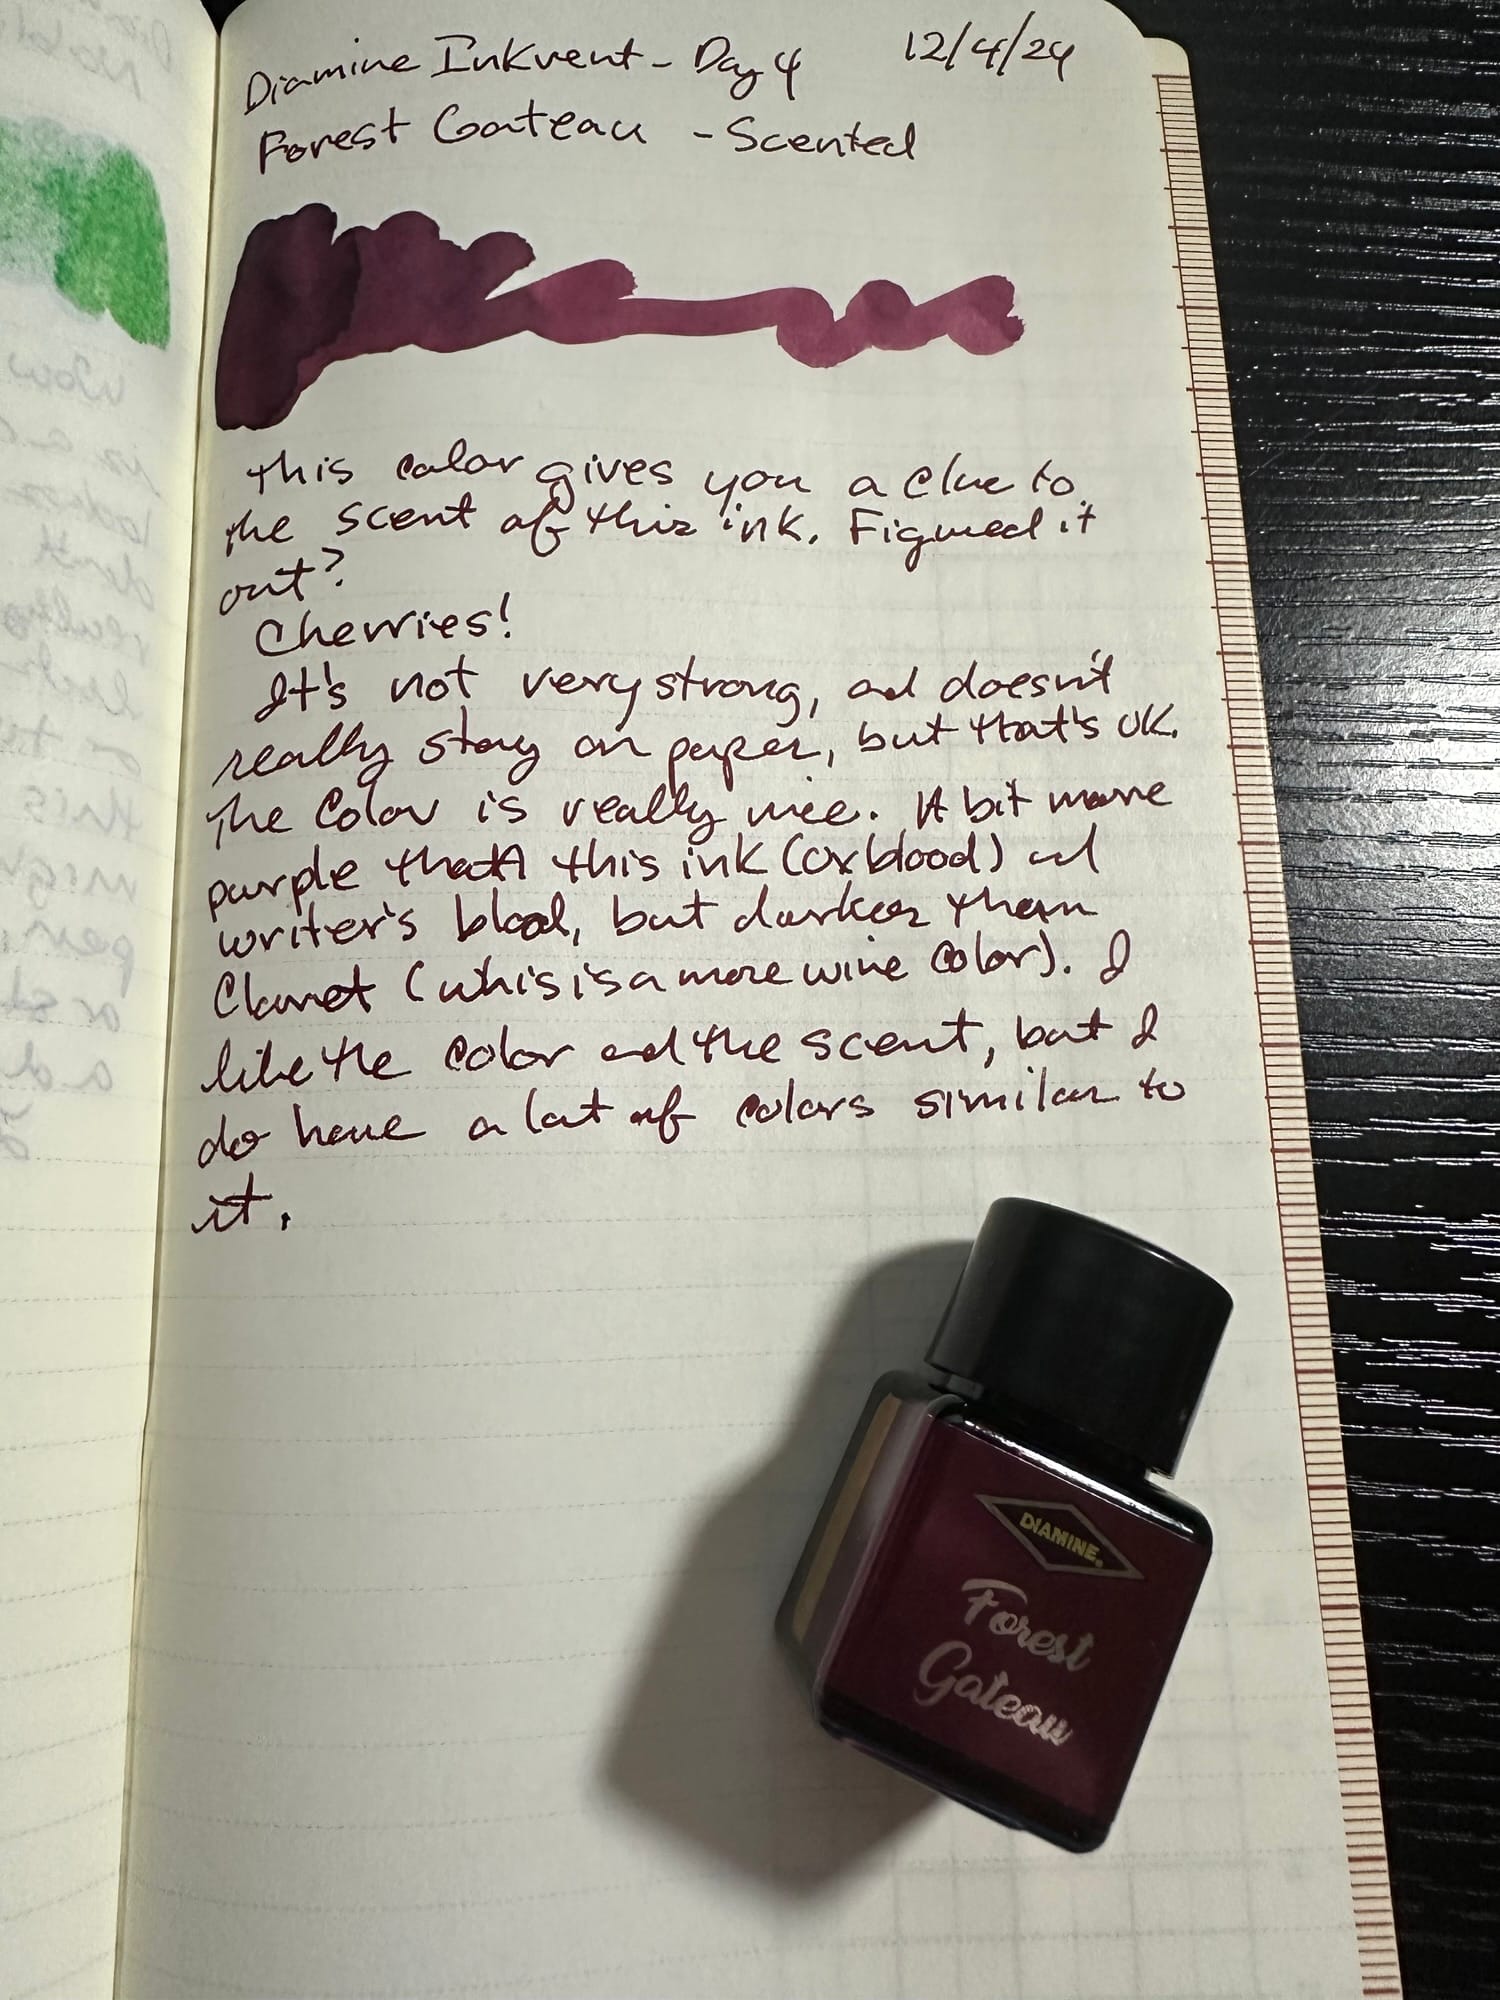 Diamine Inkvent - Day 4 12/4/24
Forest Gateau - Scented
This color gives you a clue to
the scent of this ink. Figured it
out?
Cherries!
It's not very strong, and doesn't
really stay on paper, but that's ok.
The color is really nice. A bit more
purple than this ink (oxblood) and
writer's blood, but darker than
Claret (whis is a more wine color). I
like the color and the scent, but I
do have a lot of colors similar to
it.
DIAMINE
Forest
Gateau